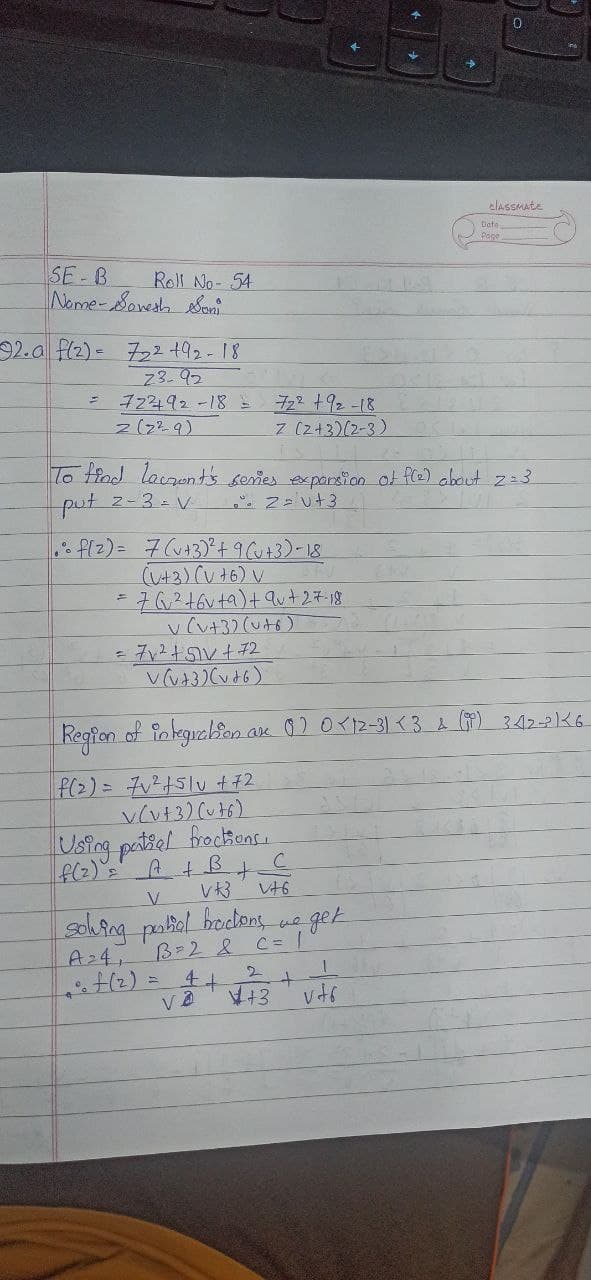 0
classmate
Date
Page
SE - B Roll No - 54
Name - Sonesh Soni
Q2.a f(z) = 7z² + 9z - 18
z3 - 9z
= 7z²+9z - 18 = 7z² + 9z - 18
z (z² - 9) z (z+3)(z-3)
To find series expansion of f(z) about z=3
put z-3 = v ∴ z = v+3
∴ f(z) = 7(v+3)² + 9(v+3) - 18
(v+3)(v+6) v
= 7(v²+6v+9) + 9v + 27-18
v (v+3)(v+6)
= 7v² + 51v + 72
v(v+3)(v+6)
Region of integration are (i) 0<|z-3|<3 & (ii) 3<|z-3|<6
f(z) = 7v² + 51v + 72
v(v+3)(v+6)
Using partial fractions,
f(z) = A + B + C
v v+3 v+6
solving partial fractions, we get
A=4, B=2 & C=1
∴ f(z) = 4 + 2 + 1
v v+3 v+6